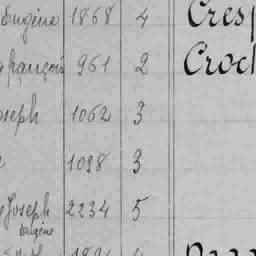 Eugène 1868 4 Cresp
françois 961 2 Croch
oseph 1062 3
1098 3
Joseph 2234 5
Eugène